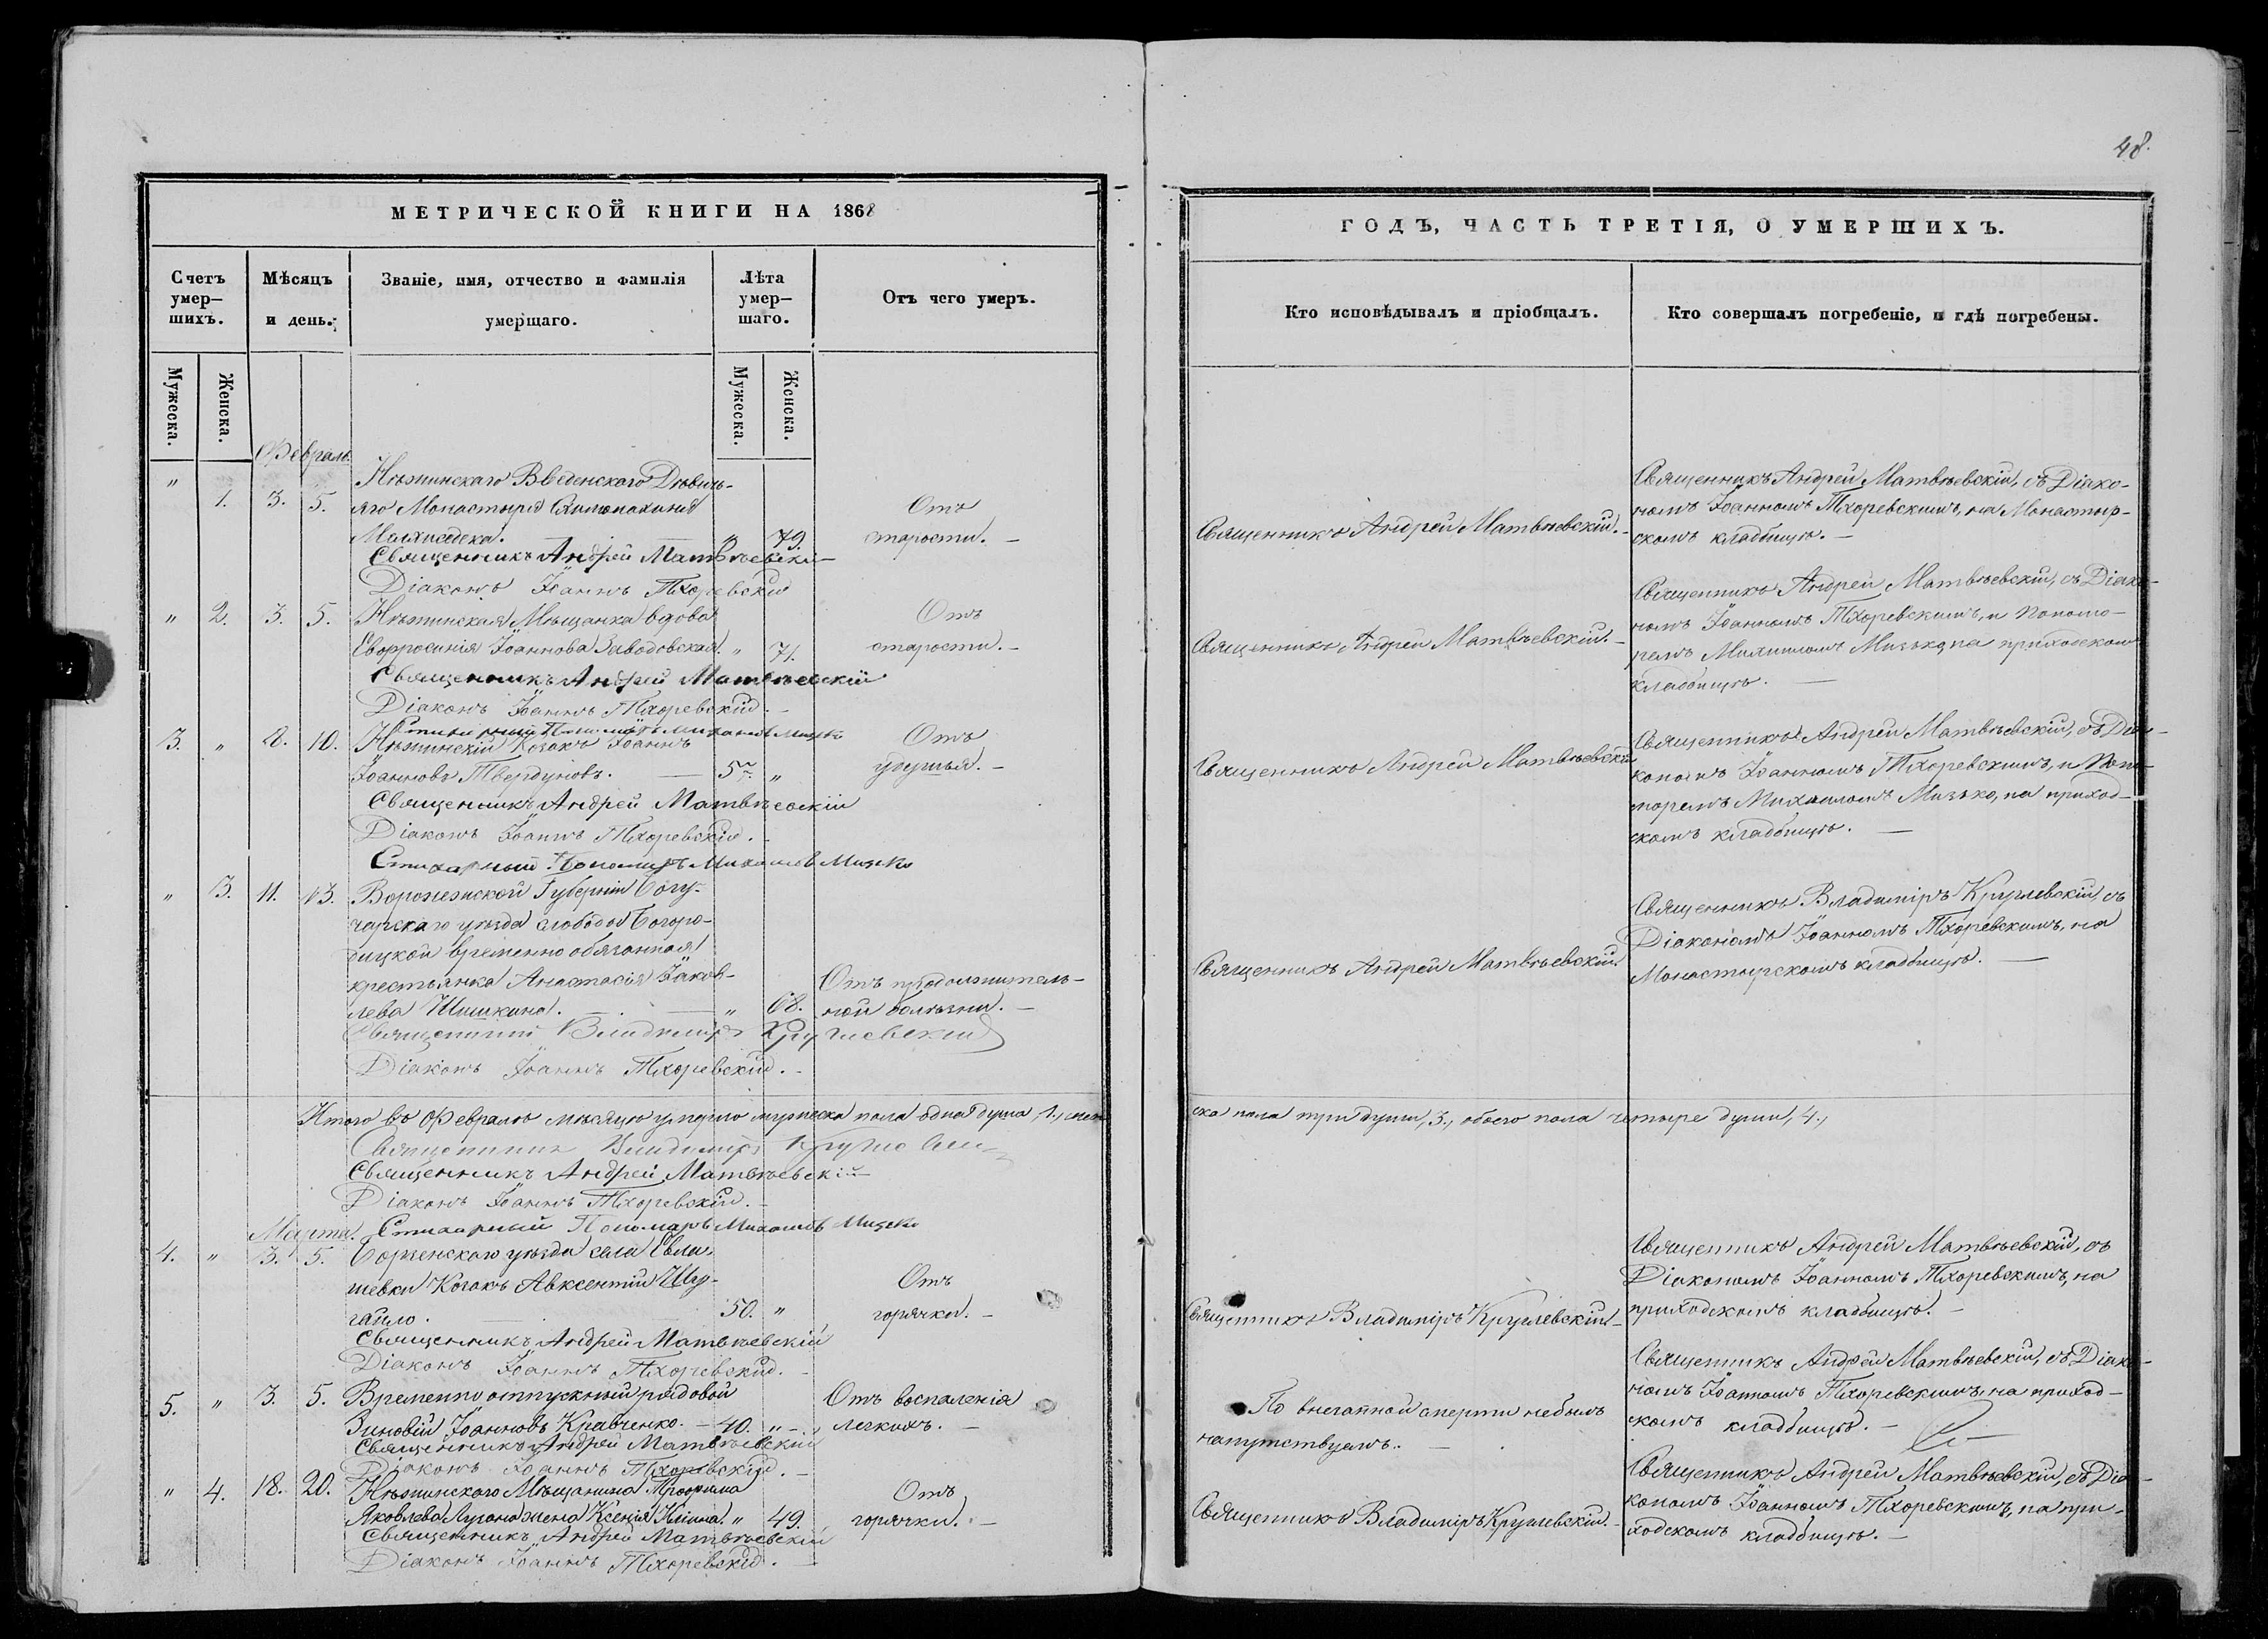 48.
МЕТРИЧЕСКОЙ КНИГИ НА 1868
Счетъ умер-шихъ.
Мѣсяцъ и день.
Званіе, имя, отчество и фамилія умершаго.
Лѣта умер-шаго.
Отъ чего умеръ.
Мужеска.
Женска.
Мужеска.
Женска.
Февраль
" 1. 3. 5. Нѣжинскаго Введенскаго Дѣвичь-
яго Монастыря Отъ
" 79. старости. —
Священникъ Андрей Матвѣевскій
Діаконъ Іоаннъ Тхоревскій
" 2. 3. 5. Нѣжинская Мѣщанка вдова Отъ
Евфросинія Іоаннова Заводовская. " 71. старости. —
Священникъ Андрей Матвѣевскій
Діаконъ Іоаннъ Тхоревскій. —
Стихарный Пономарь Михаилъ Мизько
3. " 8. 10. Нѣжинскій Козакъ Іоаннъ Отъ
Іоанновъ Твердуновъ. — 5 " удушья. —
Священникъ Андрей Матвѣевскій
Діаконъ Іоаннъ Тхоревскій. —
Стихарный Пономарь Михаилъ Мизько
" 3. 11. 13. Воронежской Губерніи Богу-
чарскаго уѣзда слободы Богоро-
дицкой временно обязанная
крестьянка Анастасія Іаков- Отъ продолжитель-
лева Шишкина. — " 68. ной болѣзни. —
Священникъ Владиміръ Круглевскій
Діаконъ Іоаннъ Тхоревскій. —
Итого въ Февралѣ мѣсяцѣ умерло мужеска пола одна душа, 1., жен-
Священникъ Владиміръ
Священникъ Андрей Матвѣевскій
Діаконъ Іоаннъ Тхоревскій. —
Марта. Стихарный Пономарь Михаилъ Мизько
4. " 3. 5. Борзенскаго уѣзда села Евла-
шевки Козакъ Авксентій Шу- Отъ
гайло. 50. " горячки. —
Священникъ Андрей Матвѣевскій
Діаконъ Іоаннъ Тхоревскій. —
5. " 3. 5. Временно отпускный рядовой Отъ воспаленія
Зиновій Іоанновъ Кравченко. — 40. " легкихъ. —
Священникъ Андрей Матвѣевскій
Діаконъ Іоаннъ Тхоревскій. —
" 4. 18. 20. Нѣжинскаго Мѣщанина Трофима Отъ
Яковлева жена Ксенія " 49. горячки. —
Священникъ Андрей Матвѣевскій
Діаконъ Іоаннъ Тхоревскій. —
ГОДЪ, ЧАСТЬ ТРЕТІЯ, О УМЕРШИХЪ.
Кто исповѣдывалъ и пріобщалъ.
Кто совершалъ погребеніе, и гдѣ погребены.
Священникъ Андрей Матвѣевскій, съ Діако-
номъ Іоанномъ Тхоревскимъ, на Монастыр-
Священникъ Андрей Матвѣевскій. —
скомъ кладбищѣ. —
Священникъ Андрей Матвѣевскій, съ Діако-
номъ Іоанномъ Тхоревскимъ, и Понома-
Священникъ Андрей Матвѣевскій. —
ремъ Михаиломъ Мизько, на приходскомъ
кладбищѣ. —
Священникъ Андрей Матвѣевскій, съ Діа-
Священникъ Андрей Матвѣевскій
кономъ Іоанномъ Тхоревскимъ, и Поно-
маремъ Михаиломъ Мизько, на приход-
скомъ кладбищѣ. —
Священникъ Владиміръ Круглевскій, съ
Діакономъ Іоанномъ Тхоревскимъ, на
Священникъ Андрей Матвѣевскій.
Монастырскомъ кладбищѣ. —
ска пола три души, 3., обоего пола четыре души, 4.,
Священникъ Андрей Матвѣевскій, съ
Діакономъ Іоанномъ Тхоревскимъ, на
Священникъ Владиміръ Круглевскій. —
приходскомъ кладбищѣ. —
Священникъ Андрей Матвѣевскій, съ Діако-
номъ Іоанномъ Тхоревскимъ, на приход-
По внезапной смерти не былъ
скомъ кладбищѣ. —
напутствуемъ. —
Священникъ Андрей Матвѣевскій, съ Діа-
кономъ Іоанномъ Тхоревскимъ, на при-
Священникъ Владиміръ Круглевскій. —
ходскомъ кладбищѣ. —